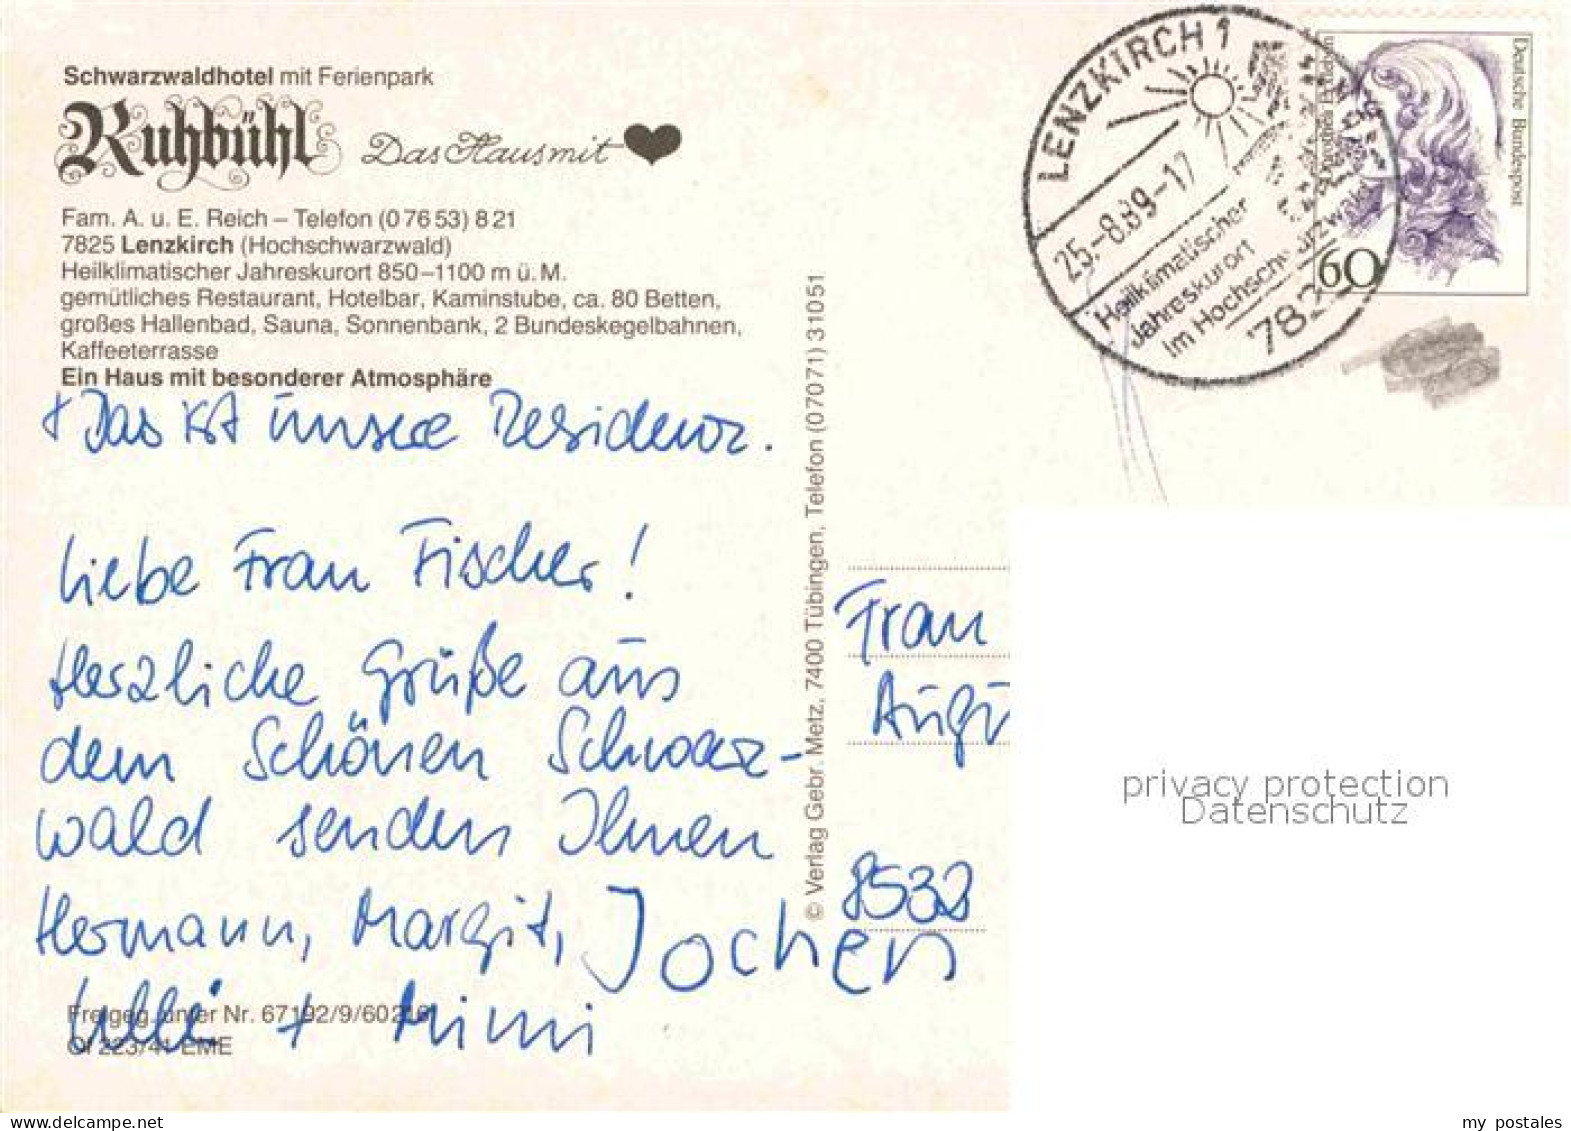 Schwarzwaldhotel mit Ferienpark
Ruhbühl Das Haus mit
Fam. A. u. E. Reich – Telefon (0 76 53) 8 21
7825 Lenzkirch (Hochschwarzwald)
Heilklimatischer Jahreskurort 850–1100 m ü. M.
gemütliches Restaurant, Hotelbar, Kaminstube, ca. 80 Betten,
großes Hallenbad, Sauna, Sonnenbank, 2 Bundeskegelbahnen,
Kaffeeterrasse
Ein Haus mit besonderer Atmosphäre
+ Das ist unsere Residenz.
Liebe Frau Fischer!
Herzliche Grüße aus
dem Schönen Schwarz-
wald senden Ihnen
Hermann, Margit, Jochen
+ Mimi
Freigeg. unter Nr. 67192/9/60216
223/41 EME
© Verlag Gebr. Metz, 7400 Tübingen, Telefon (07071) 31051
LENZKIRCH 1
25.-8.89-17
Heilklimatischer
Jahreskurort
Im Hochschwarzwald
782
Deutsche Bundespost
60
Frau
8532
privacy protection
Datenschutz
delcampe.net
my_postales